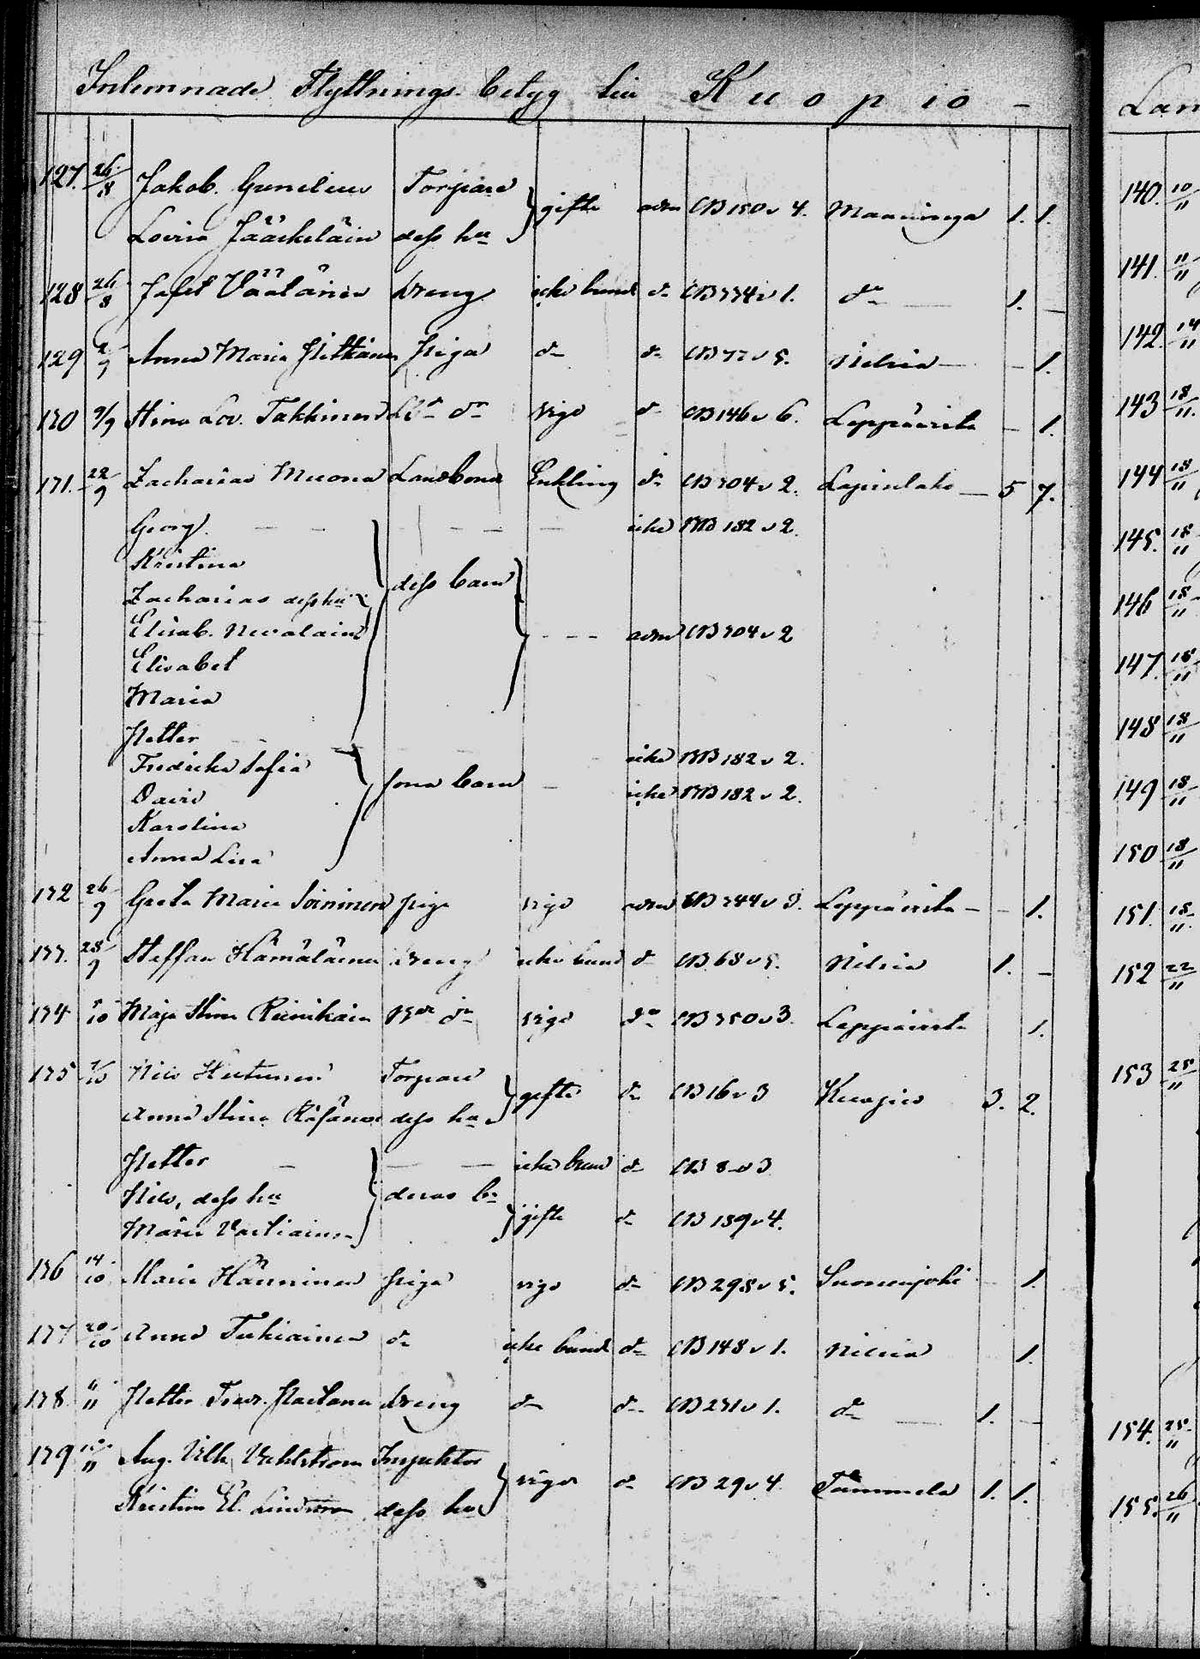 Inlemnade Flyttnings betyg till Kuopio - Lan
127. 26/8 Jakob Gumelius Torpare gifte adm CB 150 v 4. Maaninga 1. 1.
Lovisa Jääskeläin dess hu
128 26/8 Jafet Väätäinen dreng icke bund do CB 334 v 1. do 1. -
129 2/9 Anna Maria Pitkänen piga do do CB 77 v 5. Nilsia - 1.
130 9/9 Stina Lov. Takkinen vigd do CB 146 v 6. Leppävirta - 1.
131. 22/9 Zacharias Landbond Enkling do CB 304 v 2. Lapinlaks 5 7.
Georg - - - - - icke BB 182 v 2.
Kristina
Zacharias dess hu dess barn
Elisab. Nevalain - - - adm CB 304 v 2
Elisabet
Maria
Petter
Fredrika Sofia icke BB 182 v 2.
David sons barn - icke BB 182 v 2.
Karolina
Anna Lisa
132 26/9 Greta Maria Soininen piga vigd adm CB 344 v 3. Leppävirta - - 1.
133. 28/9 Staffan Hämäläinen dreng icke bund do CB 68 v 5. Nilsia 1. -
134 /10 Maja Stina Reinikain do vigd do CB 350 v 3. Leppävirta 1.
135 7/10 Nils Torpare gifte do CB 16 v 3 Kuopio 3. 2.
Anna Stina Räsänen dess hu
Petter - - - icke bund do CB 8 v 3
Nils, dess hu deras bn
Maria Vartiainen gifte do CB 139 v 4.
136 14/10 Maria Hänninen piga vigd do CB 298 v 5. Suonenjoki 1.
137 20/10 Anna Tukiainen do icke bund do CB 148 v 1. Nilsia 1.
138 /11 Petter dreng do do CB 231 v 1. do 1. -
139 /11 Aug. Vilh. Vahlström Inspektor vigde do CB 29 v 4. Tammela 1. 1.
Kristina El. Lindström dess hu
140. 10/11
141. 11/11
142. 14
143 18/11.
144 18/11
145. 18/11
146 18/11
147. 18/11
148 18/11
149 18/11
150 18/11
151. 18/11.
152 22/11
153 25/11
154. 25/11
155. 26/11